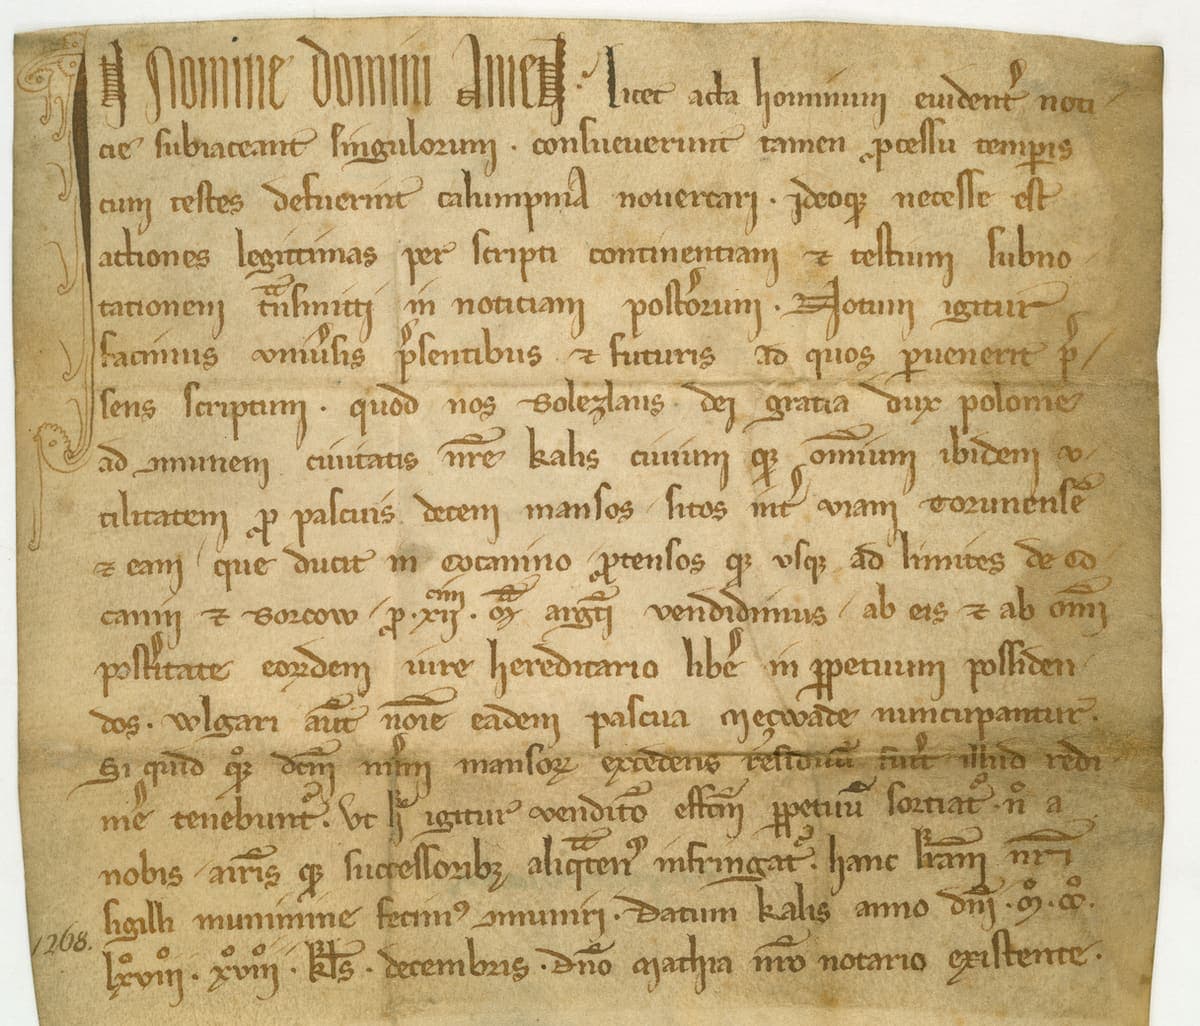 In Nomine domini Amen. licet acta hominum evident' noti
cie subiaceant singulorum. consueverunt tamen pcessu temporis
cum testes defuerint calumpnia novercari. ideoque necesse est
actiones legittimas per scripti continentiam et testium subno
tationem tnsmitti in noticiam post'orum. Notum igitur
facimus univ'sis p'sentibus et futuris ad quos pervenerit p'
sens scriptum. quod nos Bolezlaus dei gratia dux polonie
ad munem civitatis nre kalis civium que omnium ibidem u
tilitatem p pascuis decem mansos sitos int' viam Torunense
et eam que ducit in Cocanino ptensos que usque ad limites de Co
canin et Borcow p. xiiii. M argti vendidimus ab eis et ab omni
post'itate eorumdem iure hereditario libe in ppetuum possiden
dos. vulgari aut noie eadem pascua Mecwade nuncupantur.
Si quid que dcm nim mansorum excedens residuum fu'it illud redi
me' tenebunt'. Ut h igitur vendito effctm ppetuu sortiat' no a
nobis airis que successoribus aliqten' infringat'. hanc lram nri
sigilli munimine fecim' muniri. Datum kalis anno dni. M. CC.
1268. lxviii. xviii. kls. decembris. dno Mathia nro notario existente.